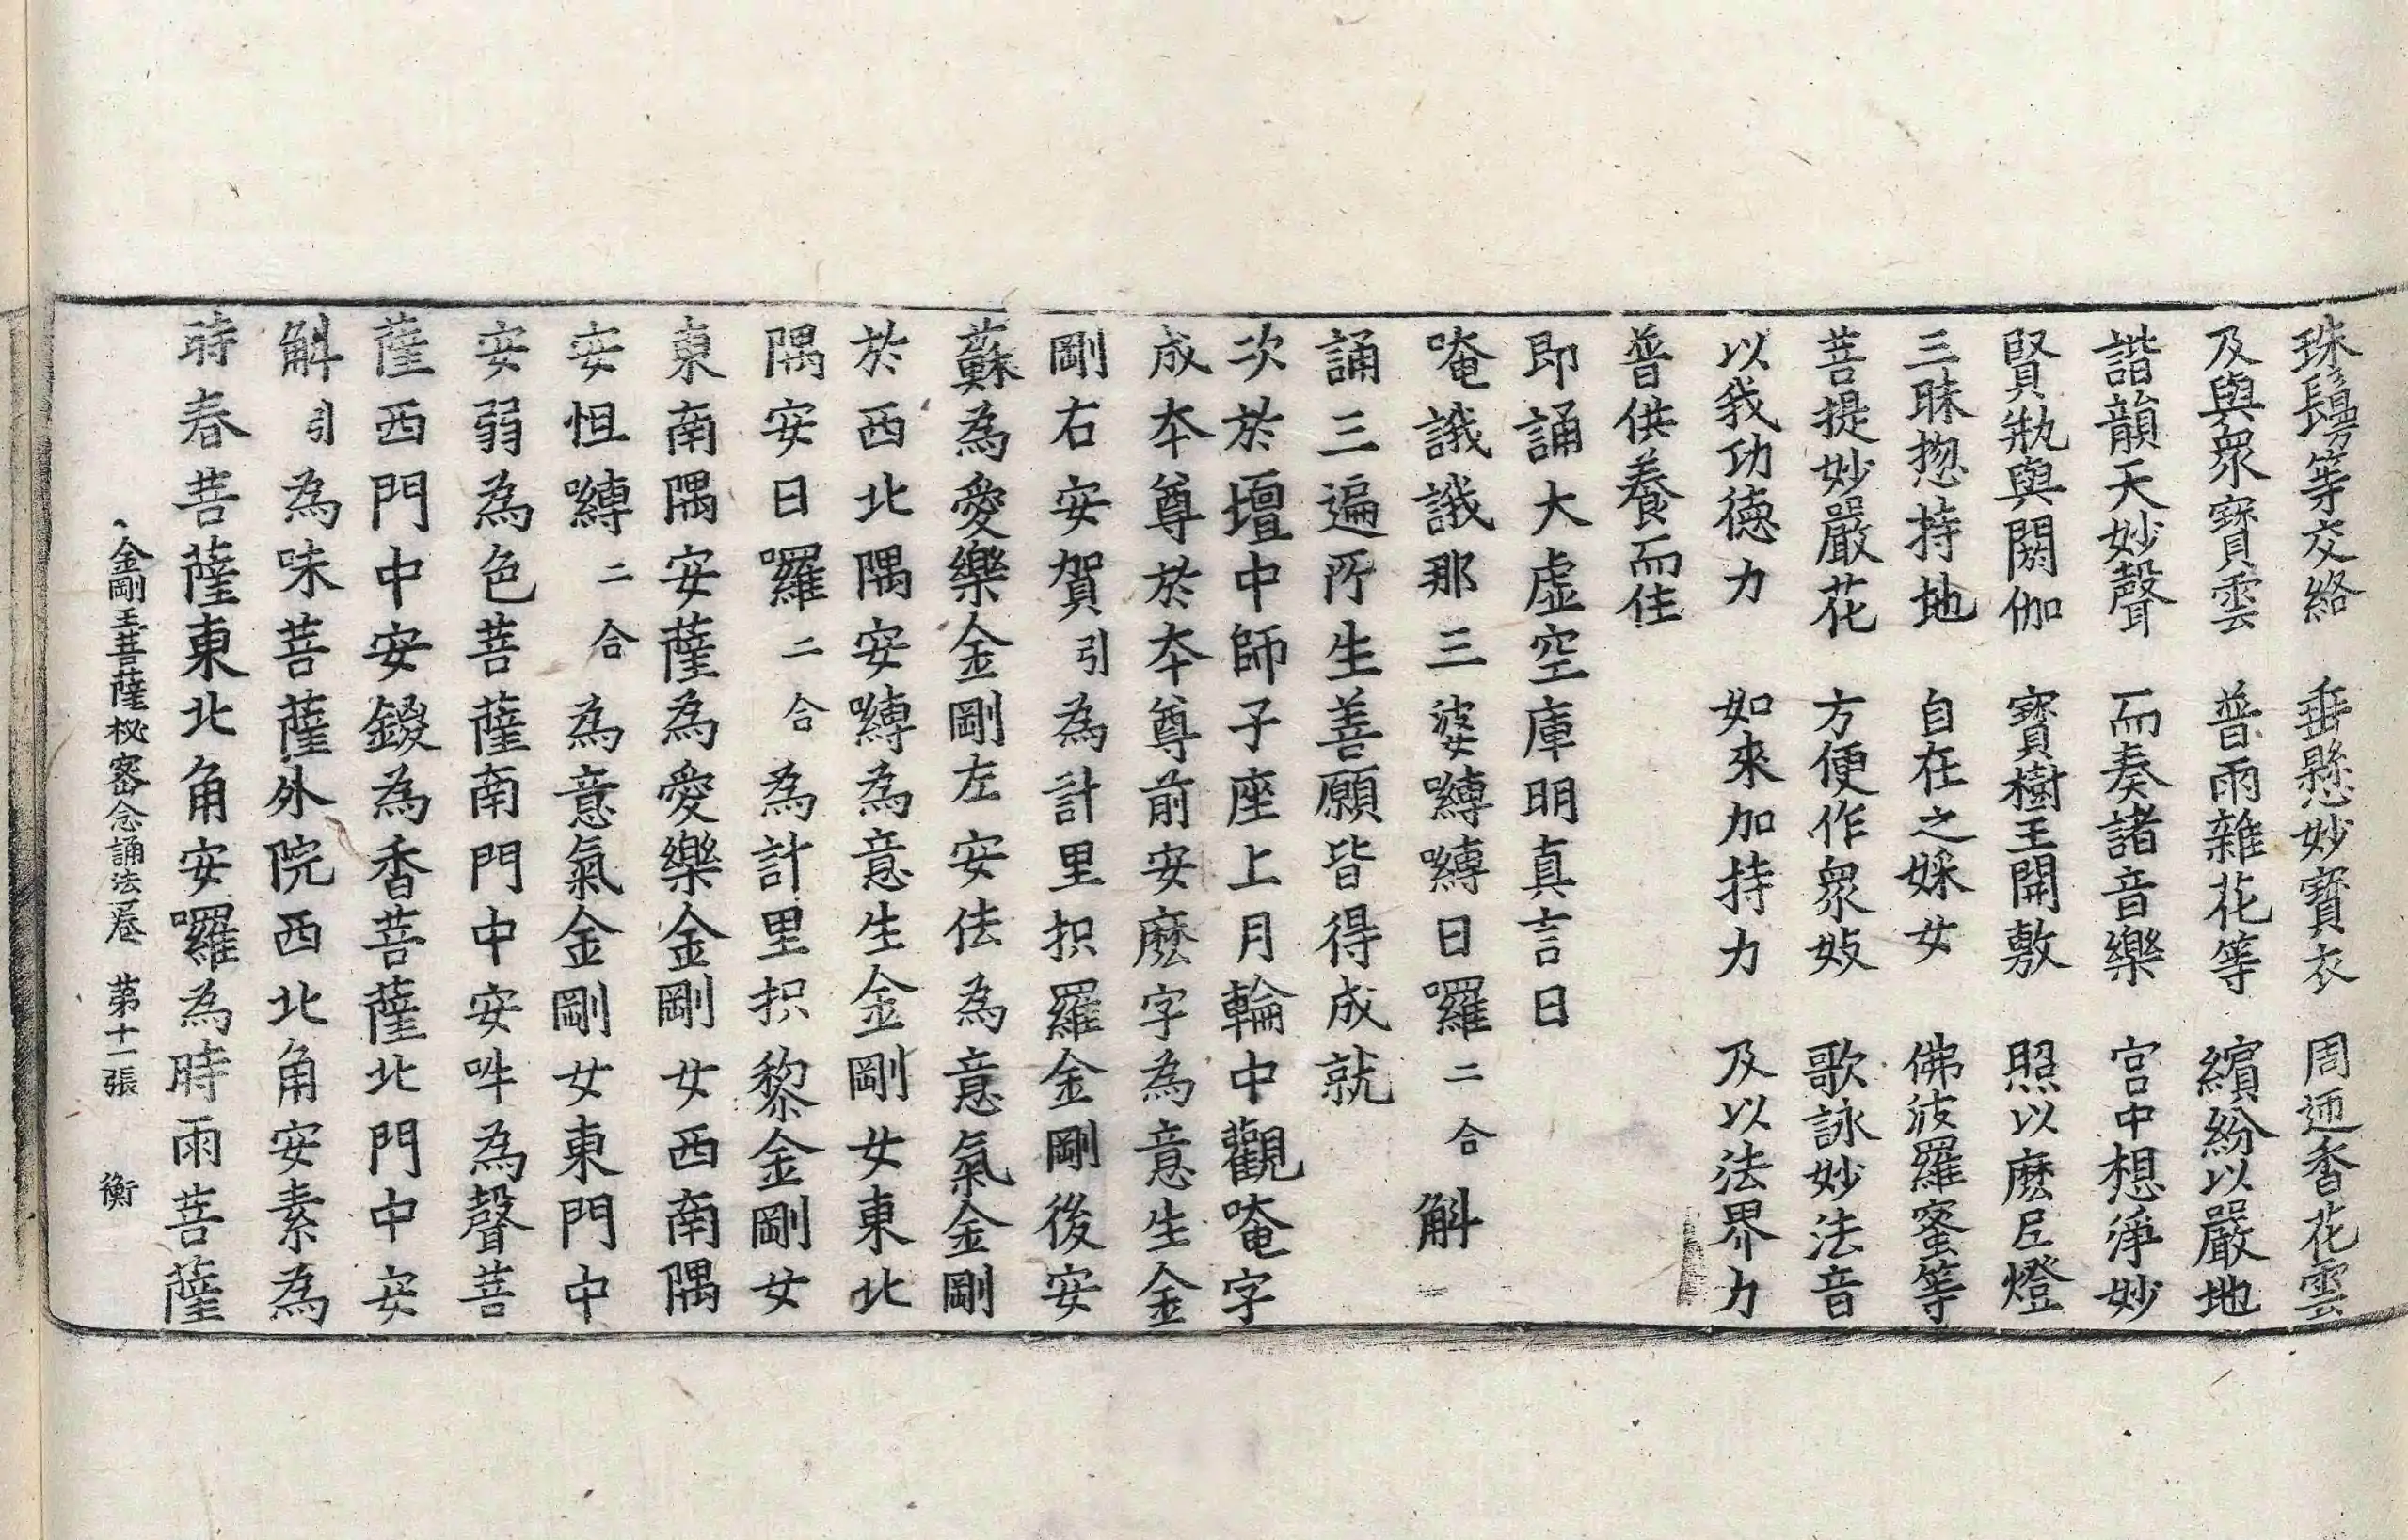 珠鬘等交絡　垂懸妙寶衣　周迊香花雲
及與衆寶雲　普雨雜花等　繽紛以嚴地
諧韻天妙聲　而奏諸音樂　宮中想淨妙
賢瓶與閼伽　寶樹王開敷　照以麽尼燈
三昧揔持地　自在之婇女　佛波羅蜜等
菩提妙嚴花　方便作衆妓　歌詠妙法音
以我功德力　如來加持力　及以法界力
普供養而住
即誦大虛空庫明真言曰
唵誐誐那三婆嚩嚩日囉二合斛
誦三遍所生善願皆得成就
次於壇中師子座上月輪中觀唵字
成本尊於本尊前安麽字為意生金
剛右安賀引為計里抧羅金剛後安
蘇為愛樂金剛左安佉為意氣金剛
於西北隅安嚩為意生金剛女東北
隅安日囉二合為計里抧黎金剛女
東南隅安薩為愛樂金剛女西南隅
安怛嚩二合為意氣金剛女東門中
安弱為色菩薩南門中安吽為聲菩
薩西門中安鋄為香菩薩北門中安
斛引為味菩薩外院西北角安素為
時春菩薩東北角安囉為時雨菩薩
金剛王菩薩秘密念誦法一卷　第十一張　衡